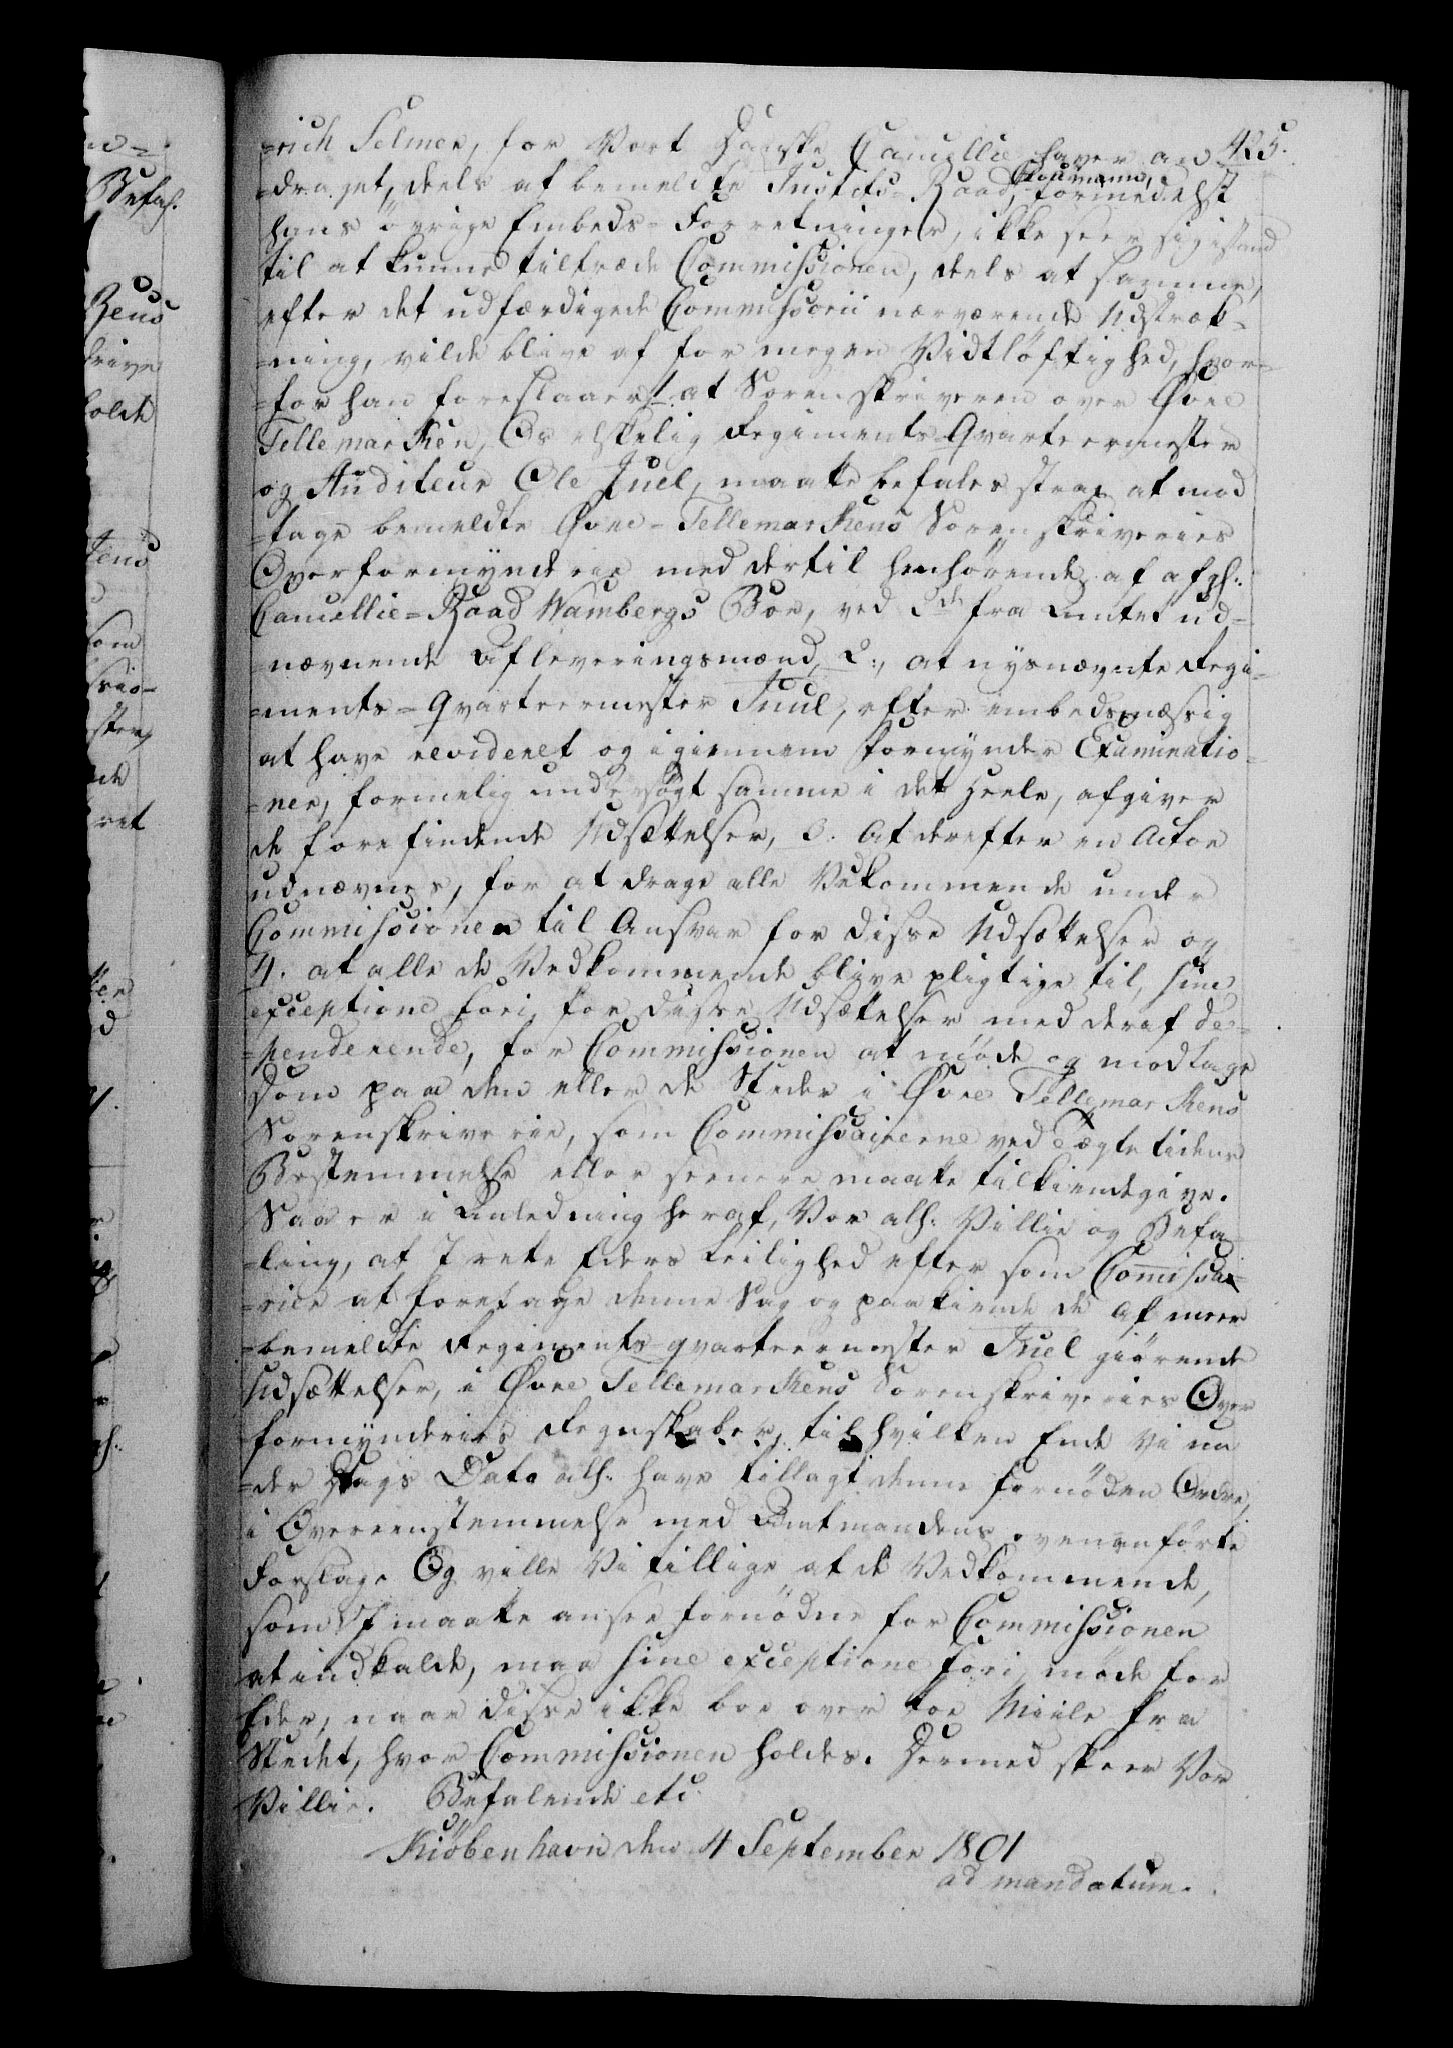 425.
=rich Selmer, for Vort Danske Cancellie haver an=
=draget, deels at bemeldte Justits=Raad, Floumann, formedelst
hans övrige Embeds=Forretninger, ikke seer sig istand
til at kunne tiltræde Commissionen, deels at samme,
efter det udfærdigede Commissorii nærværende Udstræk=
=ning, vilde blive af for megen Vidtlöftighed, hvor=
=for han foreslaaer 1. at Sorenskriveren over Øvre
Tellemarken, Os elskelig Regiments Qvarteermester
og Auditeur Ole Juel, maatte befales strax at mod
=tage bemeldte Øvre=Tellemarkens Sorenskriveries
Overformynderie med dertil henhörende, af afgl:
Cancellie=Raad Wambergs Boe, ved 2de fra Amtet ud=
=nævnende Afleveringsmænd, 2:, at nysnævnte Regi=
=ments=Qvarteermester Juul, efter embedsmæssig
at have revideret og igiennem Formynder Examinatio=
=ner, formelig undersögt samme i det Heele, afgiver
de forefindende Udsættelser, 3. At derefter en Actor
udnævnes, for at drage alle Vedkommende under
Commissionen til Ansvar for disse Udsættelser og
4. at alle de Vedkommende blive pligtige til, sine
exceptione fori, for disse Udsættelser med deraf de=
=penderende, for Commissionen at möde og modtage
Dom paa den eller de Steder i Øvre Tellemarkens
Sorenskriverie, som Commissairerne ved Tægtetidens
Bestemmelse eller seenere maatte tilkiendegive.
Saa er i Anledning heraf, Vor alh: Villie og Befa=
=ling, at I rette Eders Leilighed efter som Comissai=
=rier at foretage denne Sag og paakiende de af meer
=bemeldte Regiments=qvarteermester Juel giörende
Udsættelser, i Øvre Tellemarkens Sorenskriveries Over
=formynderies Regnskaber, til hvilken Ende Vi un
=der Dags Dato alh: have tillagt denne fornöden Ordre,
i Overeenstemmelse med Amtmandens ovenanförte
Forslag. Og ville Vi tillige at de Vedkommende,
som I maatte ansee fornödne for Commissionen
at indkalde, maa sine exceptione fori möde for
Eder, naar disse ikke boe over toe Miile fra
Stedet, hvor Commissionen holdes. Dermed skeer Vor
Villie. Befalende etc.
Kiöbenhavn den 4 September 1801
ad mandatum.